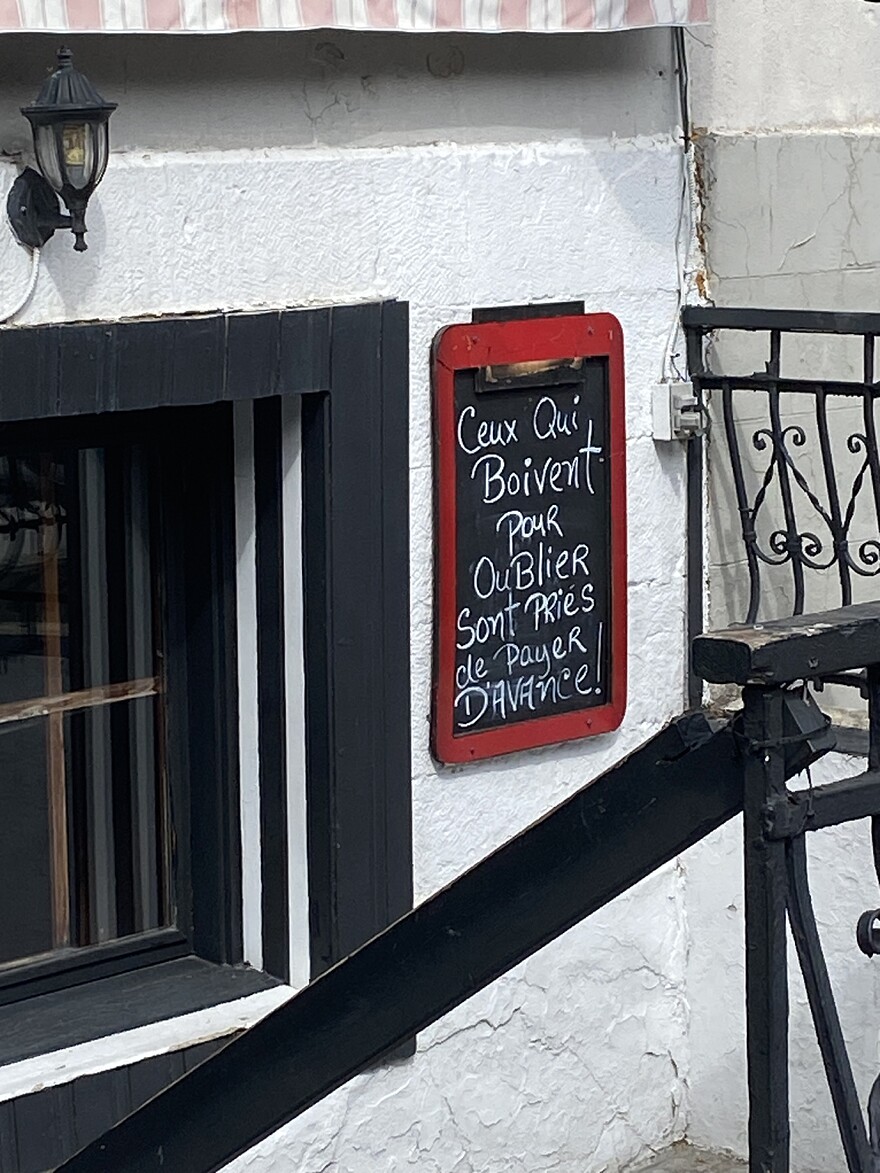 Ceux Qui
Boivent
Pour
OuBlier
Sont PRiés
de Payer
D'AVANce!